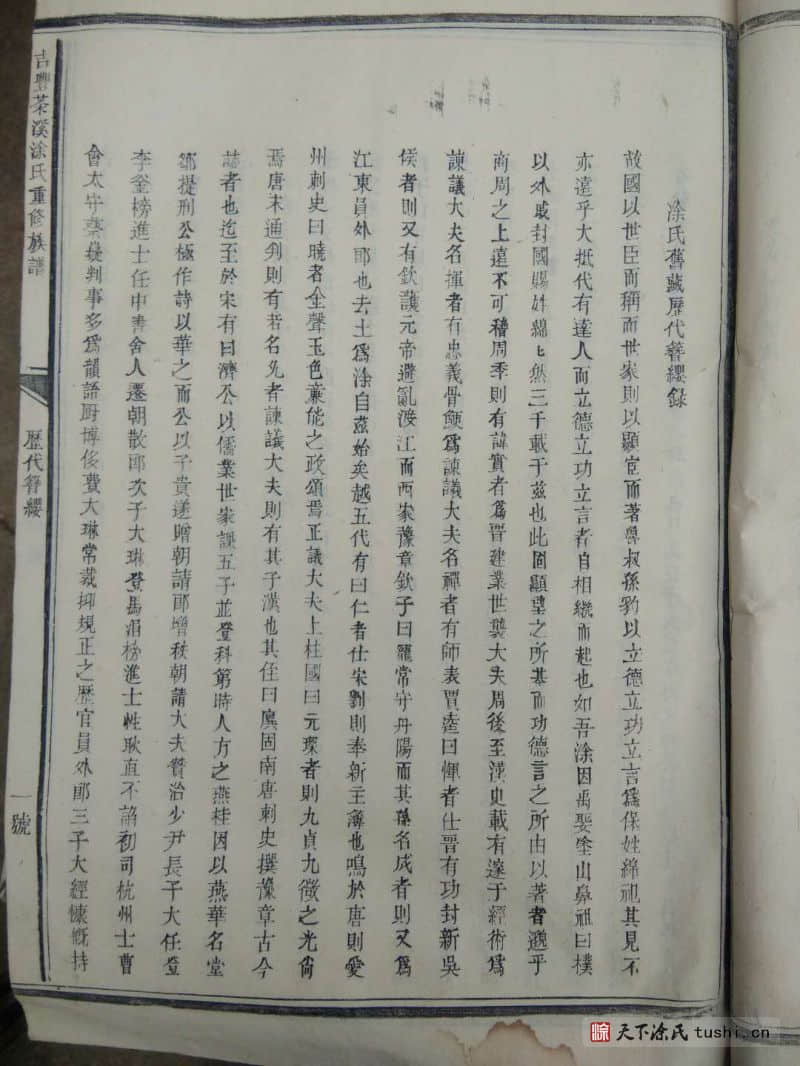 涂氏舊藏歷代簪纓錄
故國以世臣而稱而世家則以顯宦而著魯叔孫豹以立德立功立言為保姓綿祀其見不
亦遠乎大抵代有達人而立德立功立言者自相繼而起也如吾涂因禹娶塗山鼻祖曰樸
以外戚封國賜姓綿匕然三千載于茲也此固顯望之所基而功德言之所由以著者邈乎
商周之上遠不可稽周季則有諱實者為晉建業世襲大夫周後至漢史載有邃于經術為
諫議大夫名揮者有忠義骨鯁為諫議大夫名禪者有師表賈逵曰惲者仕晉有功封新吳
侯者則又有欽讓元帝避亂渡江而西家豫章欽子曰寵常守丹陽而其孫名成者則又為
江東員外郎也去土為涂自茲始矣越五代有曰仁者仕宋劉則奉新主簿也鳴於唐則愛
州刺史曰曉者金聲玉色廉能之政頌焉正議大夫上柱國曰元璨者則九貞九徵之光尚
焉唐末通判則有若名先者諫議大夫則有其子漢也其侄曰廙固南唐刺史撰豫章古今
誌者也迄至於宋有曰濟公以儒業世家課五子並登科第時人方之燕桂因以燕華名堂
鄒提刑公極作詩以華之而公以子貴遂贈朝請郎增秩朝請大夫贊治少尹長子大任登
李釜榜進士任中書舍人遷朝散郎次子大琳登馬涓榜進士性耿直不諂初司杭州士曹
會太守蔡嶷判事多為韻語厨博侈費大琳常裁抑規正之歷官員外郎三子大經慷慨持
吉豐茶溪涂氏重修族譜
歷代簪纓
一號
涂 天下涂氏 tushi.cn